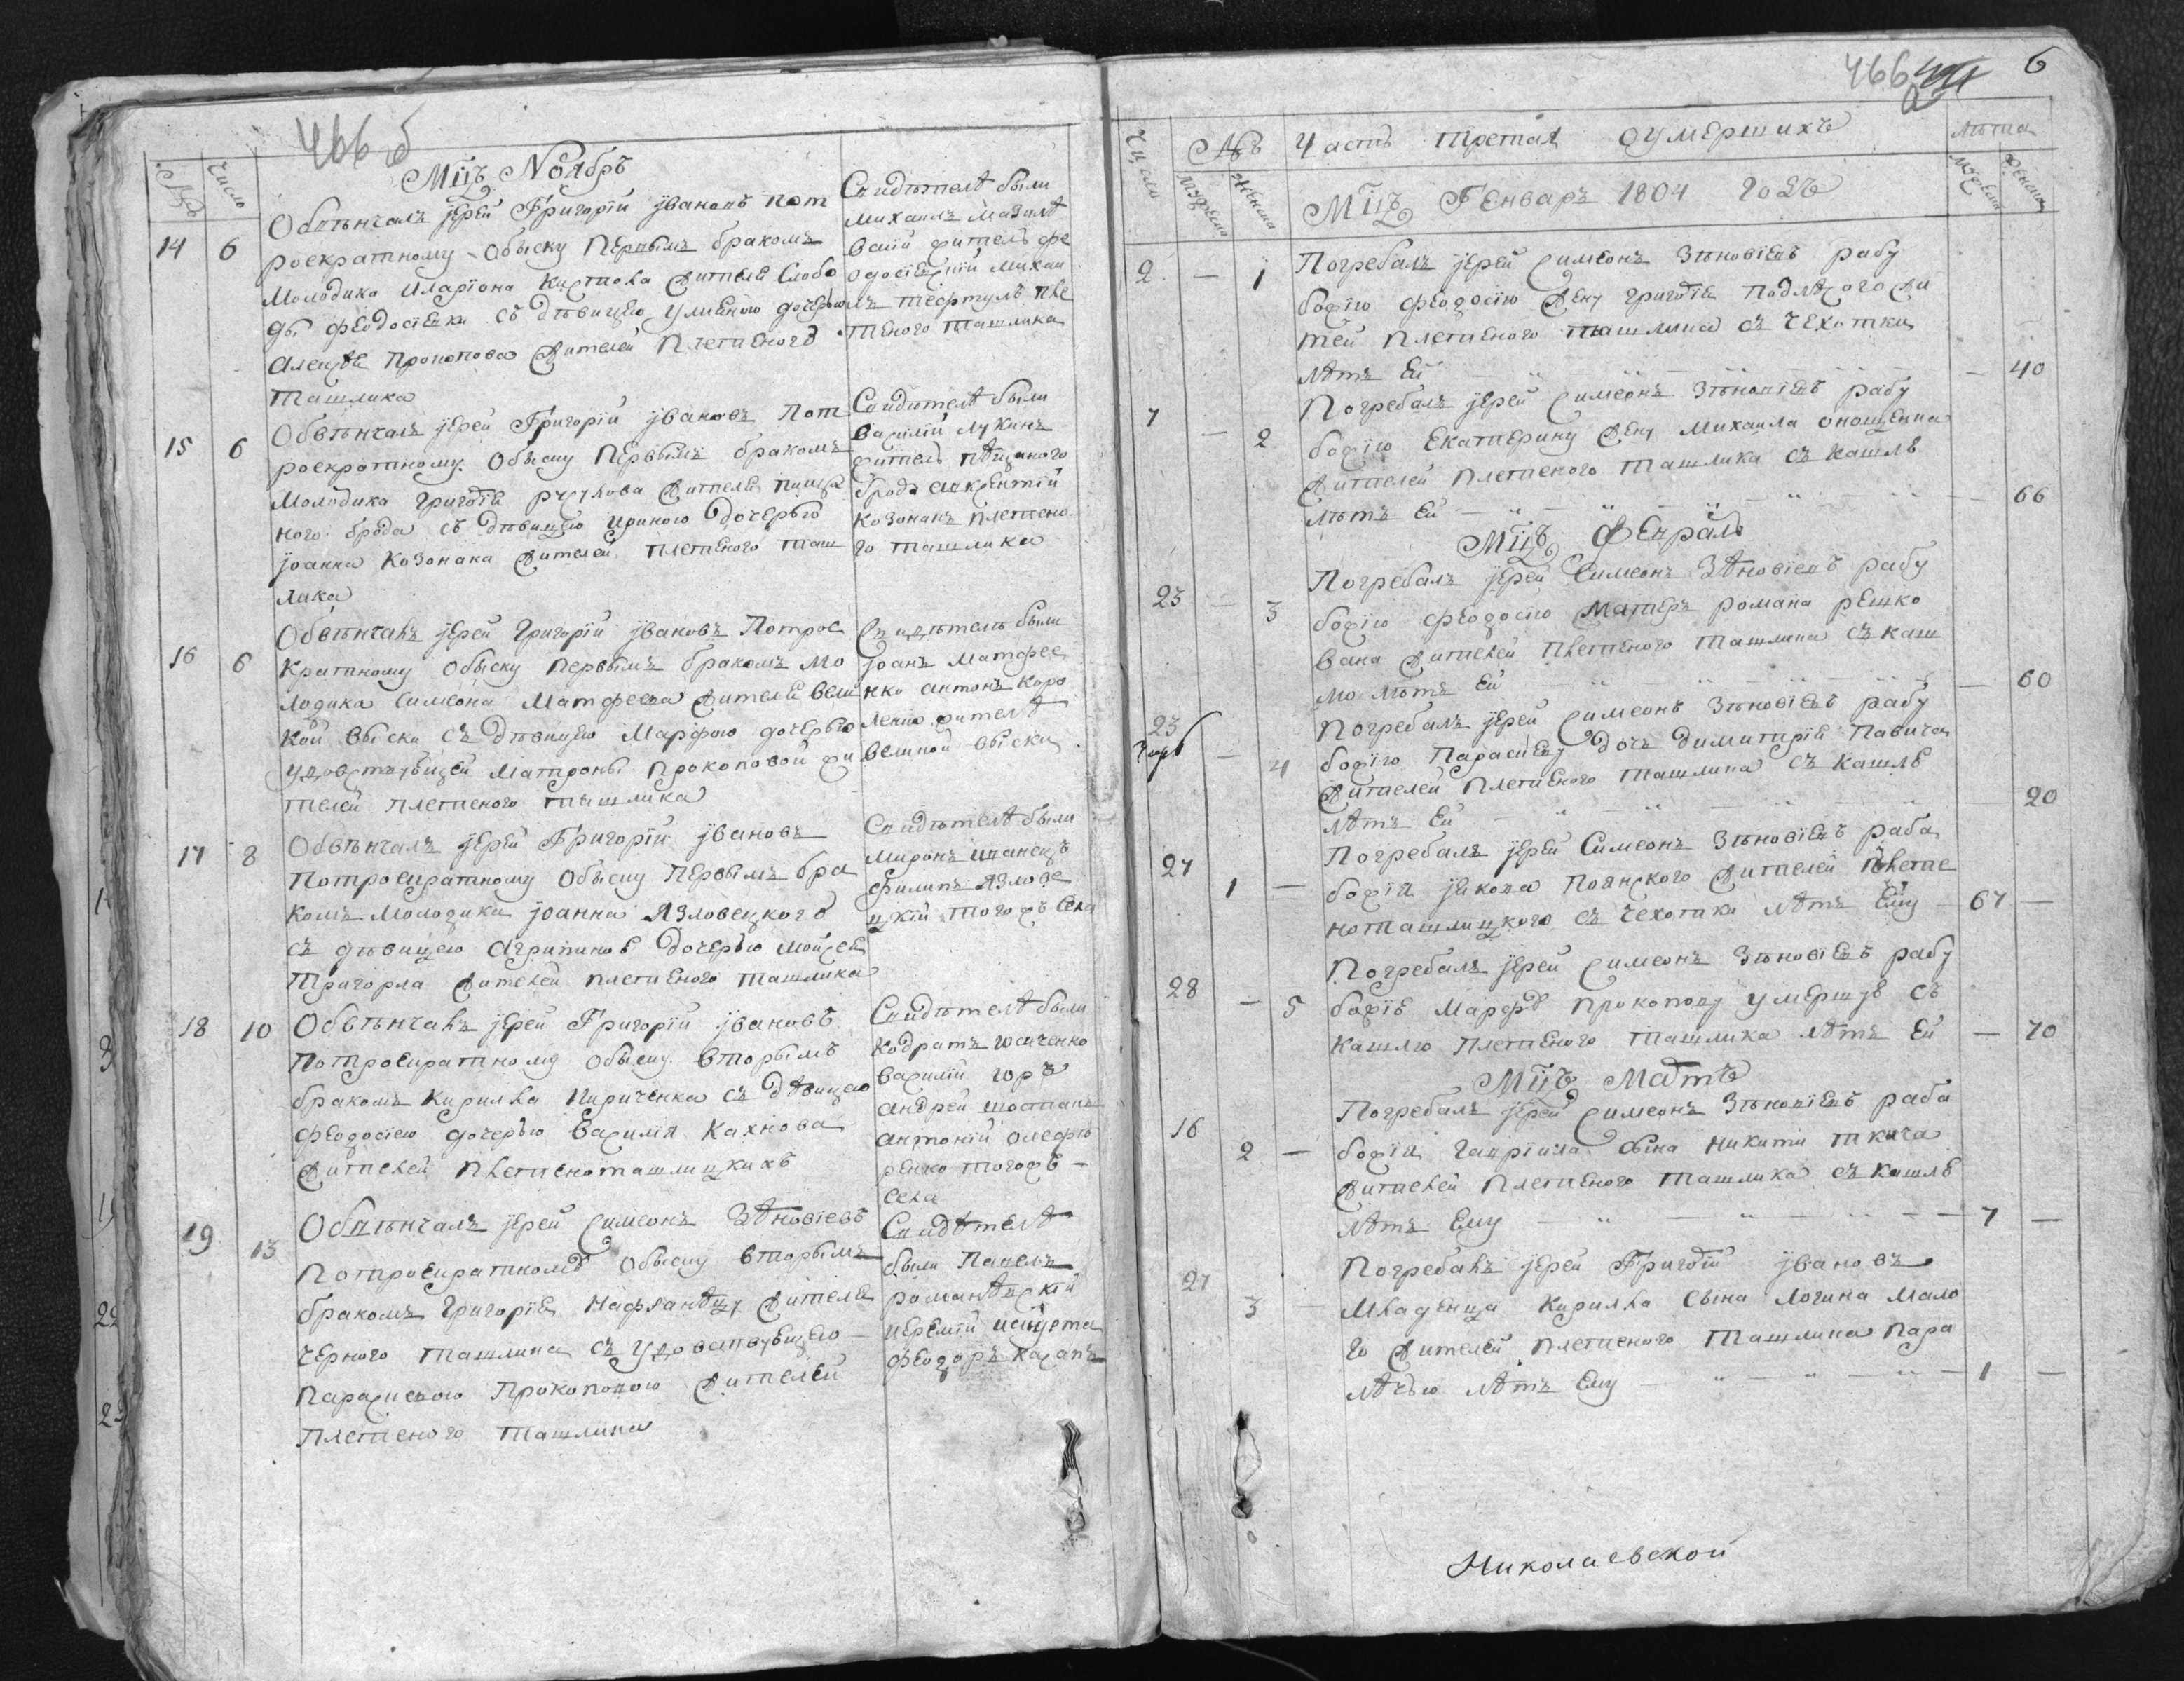 466 б
Мцъ Ноябръ
№ Число
14 6 Обвѣнчалъ ѵерей Григорїй ѵвановъ пот
роекратному Обыску Первымъ бракомъ
Молодика Иларїона жителя Слобо
ды Феодосїевки съ дѣвицею Улияною дочерью
Алексѣя Прокопова жителей Плетеного
Ташлика
Свидѣтеля были
Михаилъ
житель Фе
одосїевскїй Михаи
лъ пле
теного ташлика
15 6 Обвѣнчалъ ѵерей Григорїй ѵвановъ Пот
роекратному Обыску Первымъ бракомъ
Молодика Григорїя жителя пища
ного брода съ дѣвицею Ириною дочерью
ѵоанна Козонака жителей плетеного таш
лика
Свидѣтеля были
Василїй Лукинъ
житель пѣщаного
брода Авксентїй
Козонакъ плетено
го ташлика
16 6 Обвѣнчалъ ѵерей Григорїй ѵвановъ Потрое
кратному Обыску первымъ бракомъ мо
лодика Симеона Матфеева жителя Вели
кой Выски съ дѣвицею Марфою дочерью
удовствующей Матроны Прокоповой жи
телей плетеного ташлика
Свидѣтель были
ѵоанъ Матфее
нко Антонъ Каро
ленко жителя
великой выски
17 8 Обвѣнчалъ ѵерей Григорїй ѵвановъ
Потроекратному Обыску Первымъ бра
комъ Молодика ѵоанна Язловецкого
съ дѣвицею Агрипиною Дочерью Мойсея
Григорла жителей плетеного ташлика
Свидѣтеля были
Миронъ
Филипъ Язлове
цкїй тогожъ Села
18 10 Обвѣнчалъ ѵерей Григорїй ѵвановъ
Потроекратному Обыску вторымъ
бракомъ Кирилла Кириченка съ дѣвицею
Феодосїею дочерью Василїя Кахнова
жителей Плетеноташлицкихъ
Свидѣтеля были
Кодратъ
Василїй
Андрей Шостакъ
Антонїй Олефи
ренко тогожъ
села
19 13 Обвѣнчалъ ѵерей Симеонъ Зѣновїевъ
Потроекратному Обыску вторымъ
бракомъ Григорїя жителя
черного ташлика съ удовствующею
Параскевою Прокоповою жителей
Плетеного ташлика
Свидѣтеля
были Павелъ
Иеремїй
Феодоръ
466 6
Число № Часть третая Оумершихъ Лѣта
Мужеска Женска Мцъ Генваръ 1804 годъ Мужеска Женска
2 — 1 Погребалъ ѵерей Симеонъ Зѣновїевъ рабу
божїю Феодосїю жену Григорїя жи
тей Плетеного ташлика съ чехотки
лѣтъ Ей — 40
7 — 2 Погребалъ ѵерей Симеонъ Зѣновїевъ рабу
божїю Екатерину жену Михаила
жителей Плетеного ташлика съ кашля
лѣтъ Ей — 66
Мцъ Февраль
23 — 3 Погребалъ ѵерей Симеонъ Зѣновїевъ рабу
божїю Феодосїю матеръ романа решко
вана жителей Плетеного ташлика съ каш
лю лѣтъ Ей — 60
23 — 4 Погребалъ ѵерей Симеонъ Зѣновїевъ рабу
божїю Параскеву дочъ димитрїя Павича
жителей Плетеного ташлика съ кашля
лѣтъ Ей — 20
27 1 — Погребалъ ѵерей Симеонъ Зѣновїевъ раба
божїя ѵакова Поянского жителей Плете
ноташлицкого съ чехотки лѣтъ Ему 67 —
28 — 5 Погребалъ ѵерей Симеонъ Зѣновїевъ рабу
божїю Марфу прокопову умершую съ
кашлю плетеного ташлика лѣтъ Ей — 70
Мцъ Мартъ
16 2 — Погребалъ ѵерей Симеонъ Зѣновїевъ раба
божїя Гаврїила Сына Никити ткача
жителей Плетеного ташлика съ кашля
лѣтъ Ему — 7 —
27 3 Погребалъ ѵерей Григорїй ѵвановъ
Младенца Кирилла Сына Логина Мало
го жителей плетеного ташлика пара
лѣчъю лѣтъ Ему — 1 —
Николаевской